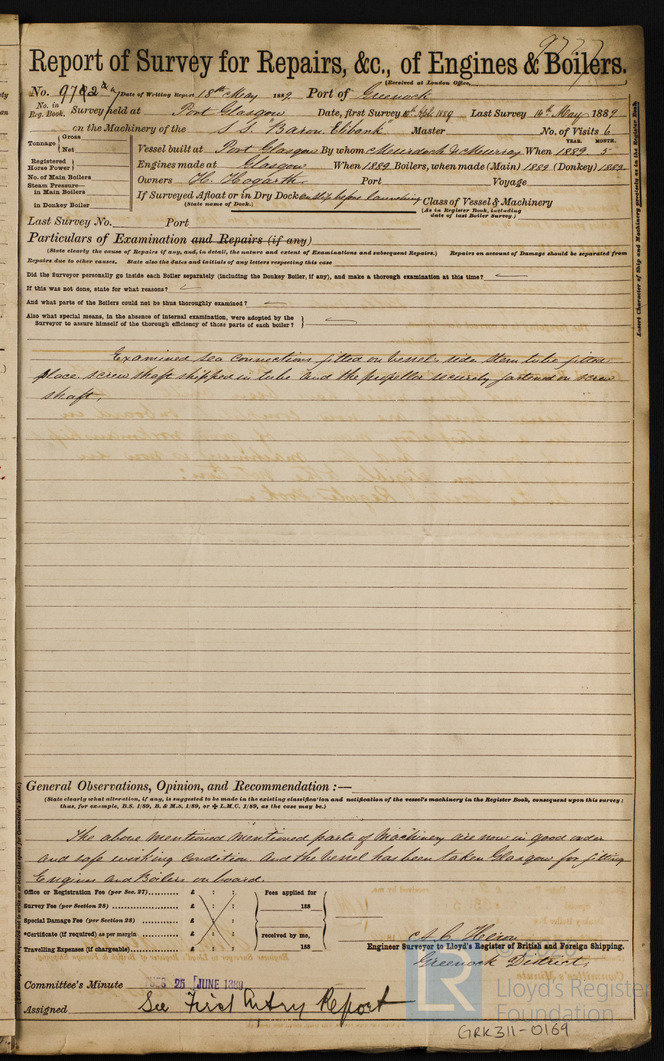 9737
Report of Survey for Repairs, &c., of Engines & Boilers.
(Received at London Office,
No. 9782 Date of Writing Report 18th May 1889 Port of Greenock
No. in Reg. Book. Survey held at Port Glasgow Date, first Survey Sept. 1889 Last Survey 14th May 1889
on the Machinery of the S.S. Baron Elibank Master No. of Visits 6
Tonnage { Gross Net
YEAR. MONTH.
Vessel built at Port Glasgow By whom Murdoch & Murray When 1889 5
Registered Horse Power }
Engines made at Glasgow When 1889 Boilers, when made (Main) 1889 (Donkey) 1889
No. of Main Boilers
Owners H. Hogarth Port Voyage
Steam Pressure— in Main Boilers
in Donkey Boiler
If Surveyed Afloat or in Dry Dock on slip before launching Class of Vessel & Machinery
(State name of Dock.) (As in Register Book, including date of last Boiler Survey.)
Last Survey No. Port
Particulars of Examination and Repairs (if any)
(State clearly the cause of Repairs if any, and, in detail, the nature and extent of Examinations and subsequent Repairs.) Repairs on account of Damage should be separated from
Repairs due to other causes. State also the dates and initials of any letters respecting this case
Did the Surveyor personally go inside each Boiler separately (including the Donkey Boiler, if any), and make a thorough examination at this time?
If this was not done, state for what reasons?
And what parts of the Boilers could not be thus thoroughly examined?
Also what special means, in the absence of internal examination, were adopted by the
Surveyor to assure himself of the thorough efficiency of those parts of each boiler? }
Examined sea connections fitted on vessel's side Stern tube fitted
place screw shaft shipped in tube and the propeller securely fastened on screw
shaft,
Insert Character of Ship and Machinery precisely as in the Register Book
General Observations, Opinion, and Recommendation :—
(State clearly what alteration, if any, is suggested to be made in the existing classification and notification of the vessel's machinery in the Register Book, consequent upon this survey;
thus, for example, B.S. 1/89, B. & M.S. 1/89, or ✠ L.M.C. 1/89, as the case may be.)
The above mentioned mentioned parts of Machinery are now in good order
and safe working condition and the Vessel has been taken Glasgow for fitting
Engines and Boilers on board.
Office or Registration Fee (per Sec. 27)......... £ : :
Survey Fee (per Section 28) ......... £ : :
Special Damage Fee (per Section 28) ......... £ : :
*Certificate (if required) as per margin ......... £ : :
Travelling Expenses (if chargeable)......... £ : :
Fees applied for
188
received by me,
188
Heron
Engineer Surveyor to Lloyd's Register of British and Foreign Shipping.
Greenock District.
Committee's Minute TUES 25 JUNE 1889
Assigned See First Entry Report
LR Lloyd's Register Foundation
GRK311-0169